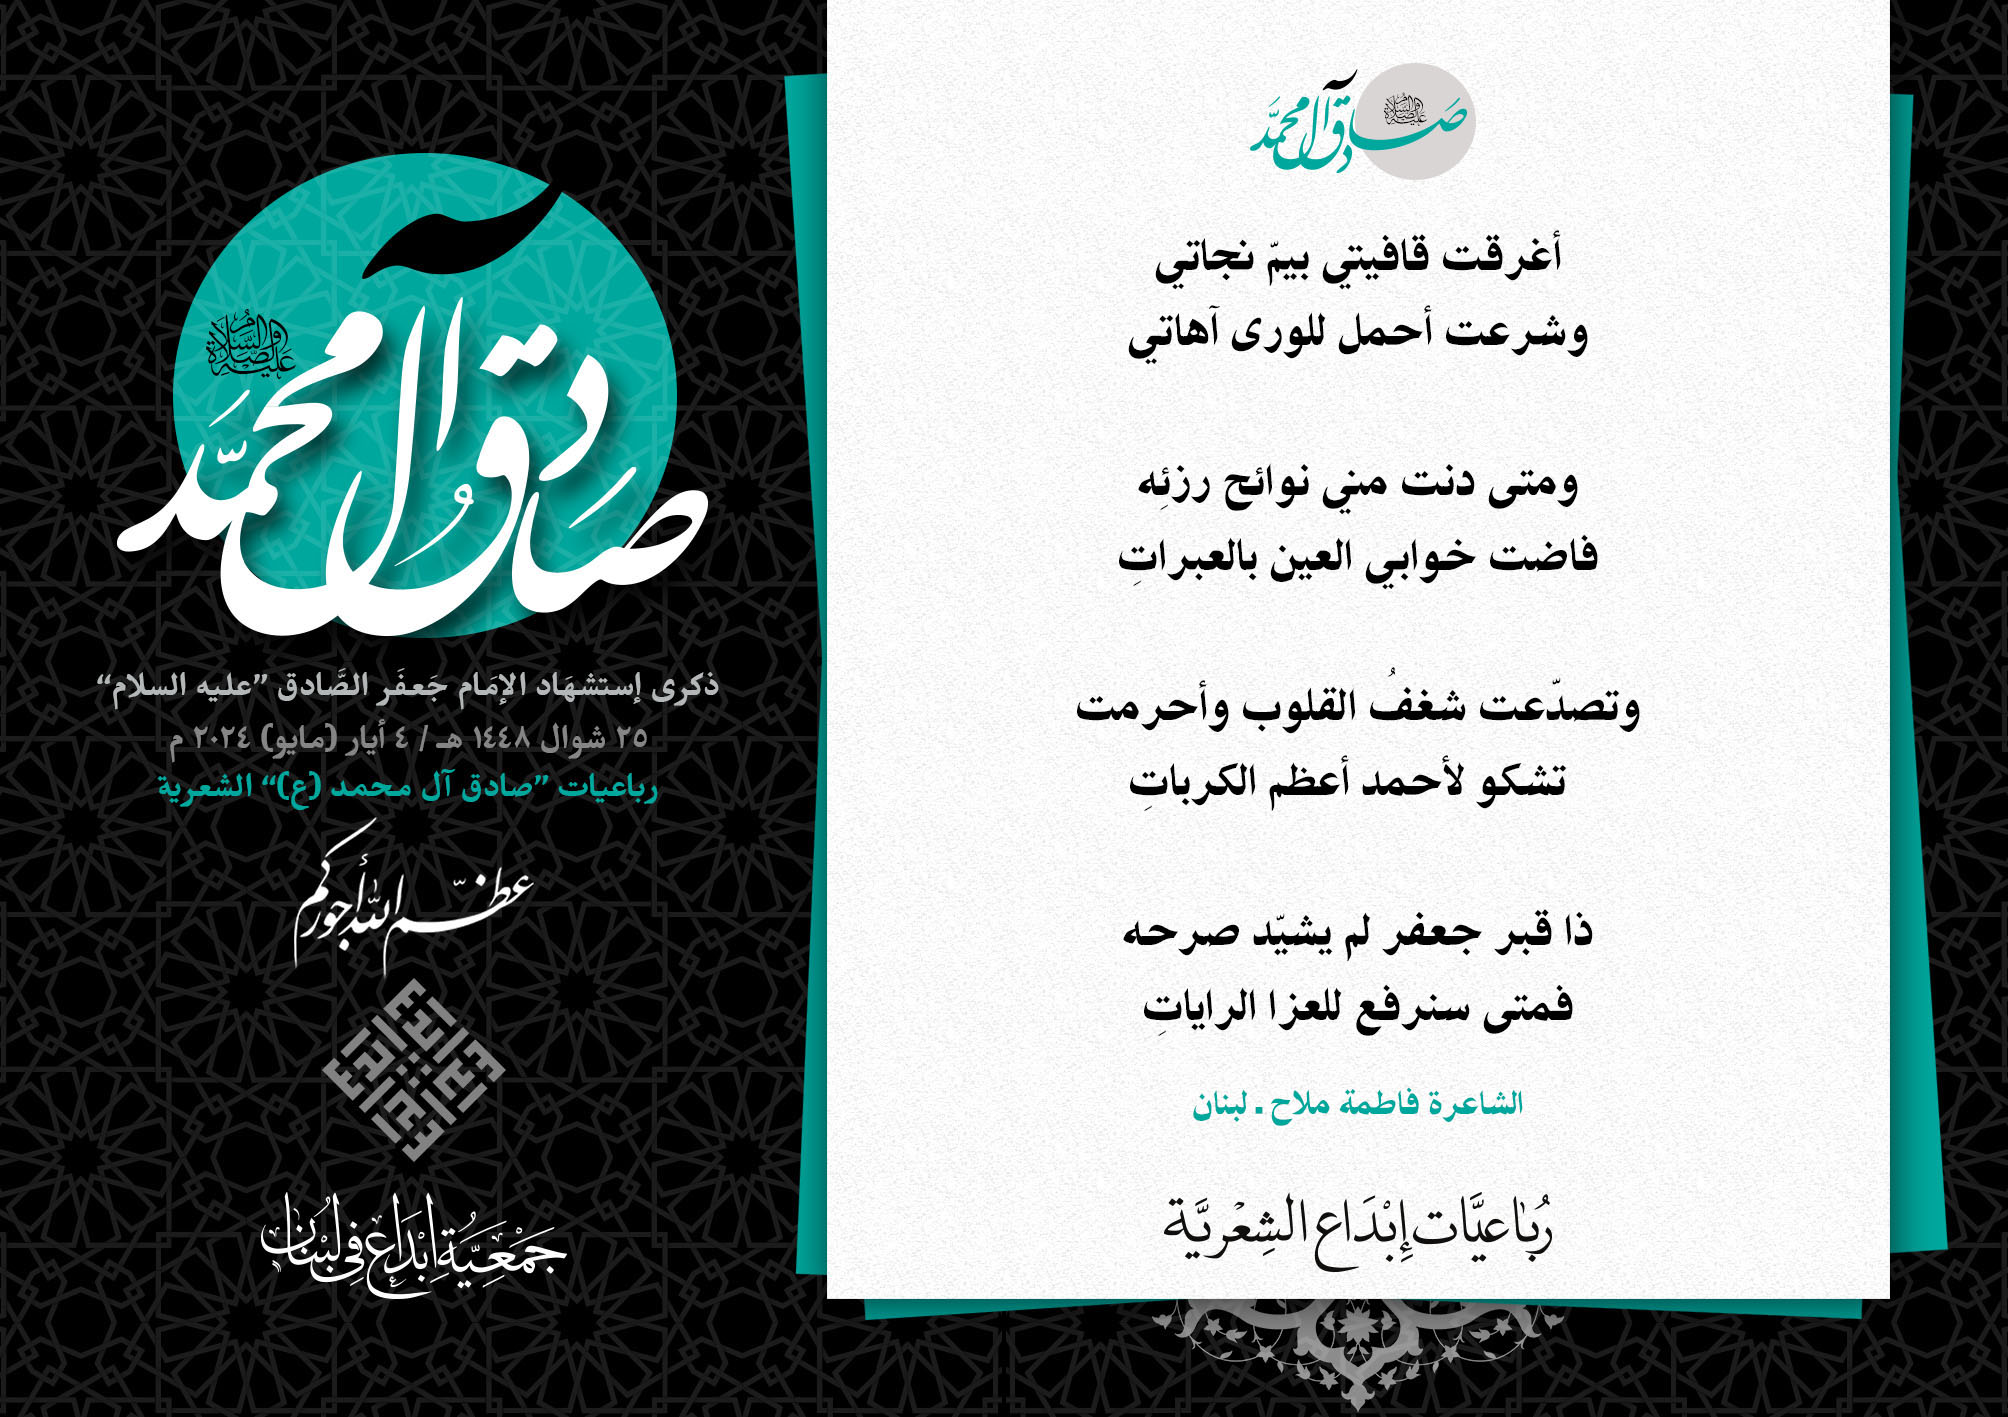 صادق آل محمد
عليه الصلاة والسلام
ذكرى إستشهَاد الإمَام جَعفَر الصَّادق ”عليه السلام“
٢٥ شوال ١٤٤٨ هـ / ٤ أيار (مايو) ٢٠٢٤ م
رباعيات ”صادق آل محمد (ع)“ الشعرية
عظّم الله أجوركم
جَمْعِيَّةُ إِبْدَاع فِي لُبْنَان
صادق آل محمَّد
عليه الصلاة والسلام
أغرقت قافيتي بيمّ نجاتي
وشرعت أحمل للورى آهاتي
ومتى دنت مني نوائح رزئِه
فاضت خوابي العين بالعبراتِ
وتصدّعت شغفُ القلوب وأحرمت
تشكو لأحمد أعظم الكرباتِ
ذا قبر جعفر لم يشيّد صرحه
فمتى سنرفع للعزا الراياتِ
الشاعرة فاطمة ملاح ـ لبنان
رُبَاعيَّات إِبْدَاع الشِعْريَّة